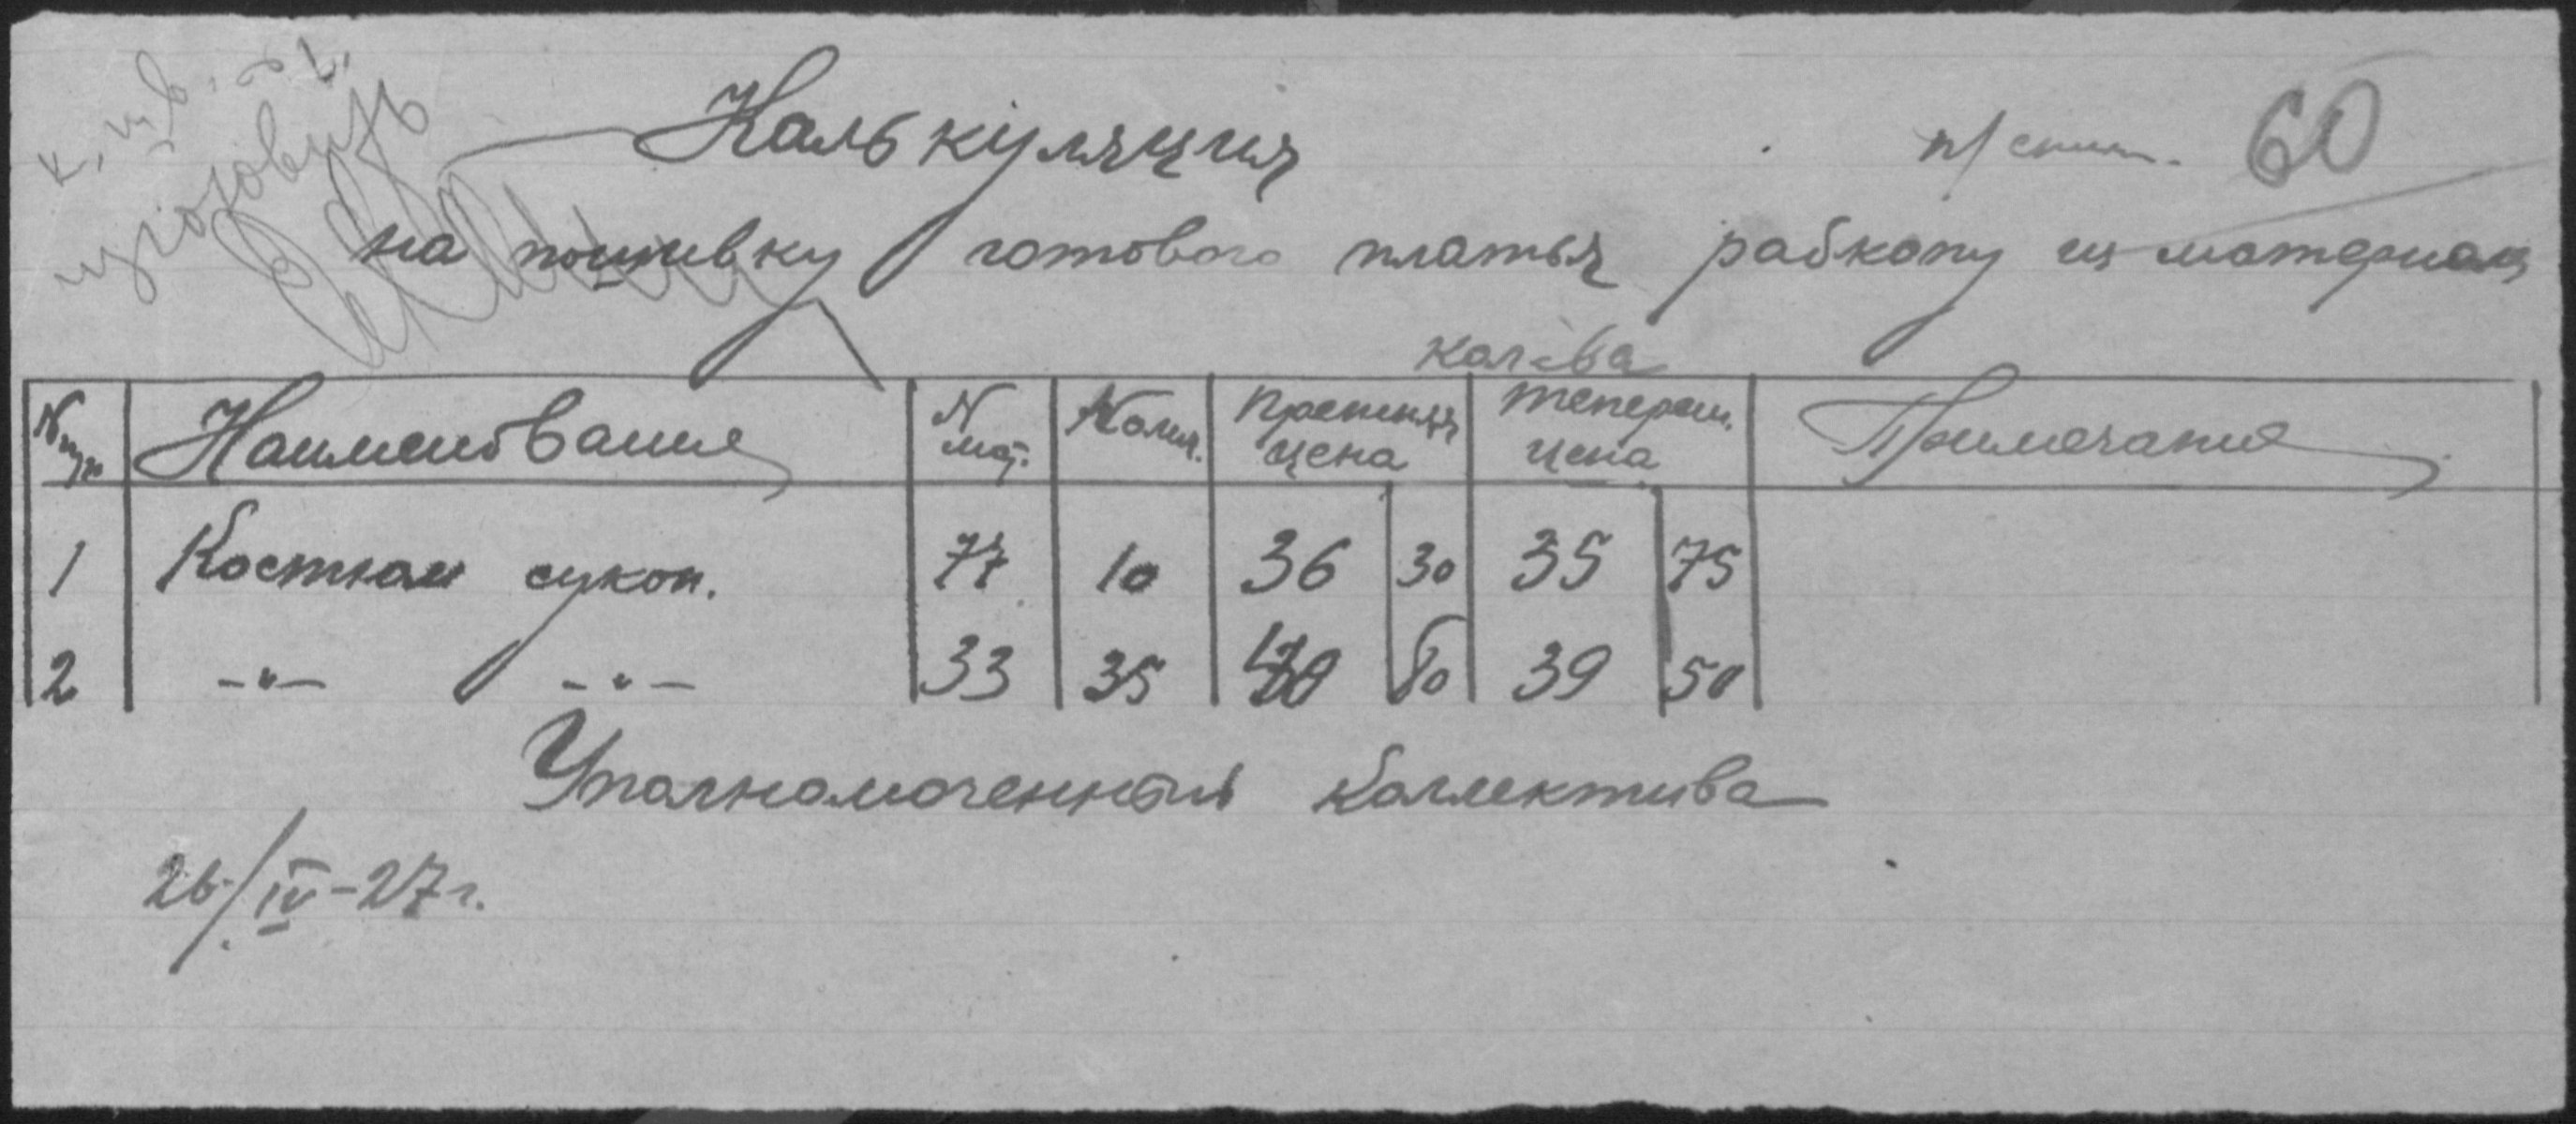 Калькуляция
60
на пошивку готового платья рабкопу из материала
кол-ва
№ п/п Наименование № мат. Колич. Прежняя цена Теперешн. цена Примечание
1 Костюм сукон. 77 10 36 30 35 75
2 -"- -"- 33 35 39 50
Уполномоченный Коллектива
26/IV-27г.